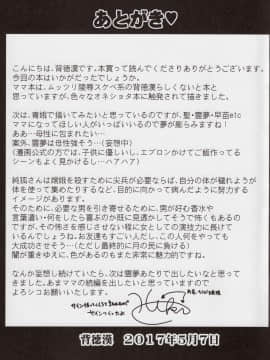 あとがき♥
こんにちは、背徳漢です。本買って読んでくださりありがとうございます。
今回の本はいかがだったでしょうか。
ママ本は、ムッツリ陵辱スケベ系の背徳漢らしくないと本と
思っていますが、色々なオネショタ本に触発されて描きました。
次は、青娥で描いてみたいと思っているのですが、聖・霊夢・早苗etc
ママになってほしい人がいっぱいいるので夢が膨らみますね！
ああ…母性に包まれたい…
案外、霊夢は母性強そう…（妄想中）
（漫画公式の方では、子供に優しいし、エプロンかけてご飯作ってる
シーンもよく見かけるし…ハアハア）
純狐さんは嫦娥を殺すために尖兵が必要ならば、自分の体が穢れようが
体を使って集めたりするなど、目的に向かって病んだように努力する
イメージがあります。
そのために、必要な男を引き寄せるために、男が好む香水や
言葉遣い・何をしたら喜ぶのか既に見透かしてそうで怖くもあるので
すが、その怖さを感じさせない程に女としての演技力に長けて
いるんでしょうね。お友達もすごい人だし、この人何をやっても
大成功させそう…（ただし最終的に月の民に負ける）
闇が重きゆえに、色があるのもまた非常に魅力的ですね。
なんか妄想し続けていたら、次は霊夢あたりで出したいなと思って
きました。あまママの続編を出したいと思っていますので
よろシコお願いいたします。
背徳漢　2017年5月7日